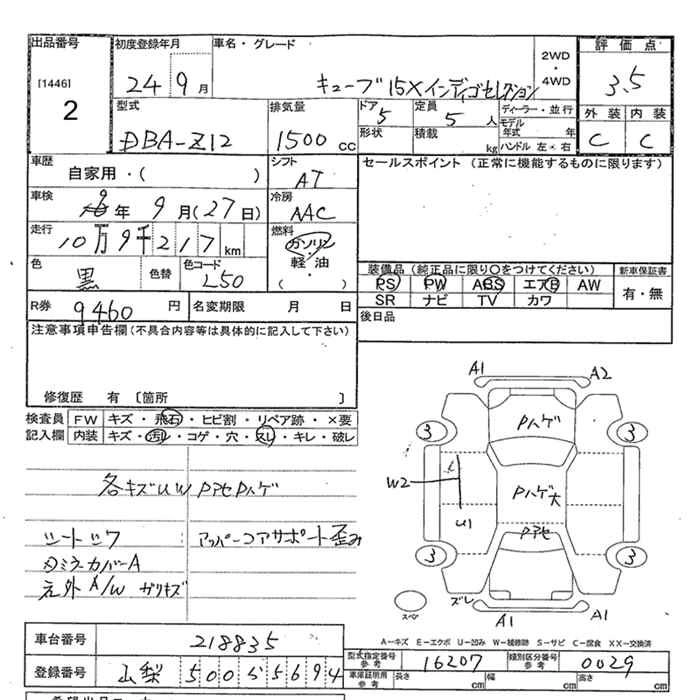 出品番号 初度登録年月 車名・グレード 2WD・4WD 評価点
[1446] 24 9月 キューブ 15X インディゴセレクション 3.5
2
型式 排気量 ドア 定員 ディーラー・並行 外装 内装
DBA-Z12 1500cc 5 5人 モデル年式 年 C C
形状 積載 kg ハンドル 左・右
車歴 シフト セールスポイント (正常に機能するものに限ります)
自家用・( ) AT
車検 冷房
年 9月(27日) AAC
走行 燃料
10万9千217km ガソリン
軽・油
・( )
色 色替 色コード 装備品 (純正品に限り○をつけてください) 新車保証書
黒 L50 PS PW ABS エアB AW 有・無
SR ナビ TV カワ
R券 9460円 名変期限 月 日 後日品
注意事項申告欄(不具合内容等は具体的に記入して下さい)
修復歴 有 〔箇所 〕
検査員 FW キズ・飛石・ヒビ割・リペア跡・×要
記入欄 内装 キズ・汚レ・コゲ・穴・スレ・キレ・破レ
A1 A2
Pハゲ
3 3
各キズUW Pアセ Pハゲ
W2 Pハゲ大
U1
Pアセ
シートシワ アッパーコアサポート歪み
カバーA
3 3
左外A/W ガリキズ
スペア ズレ
A1 A1
A-キズ E-エクボ U-凹み W-補修跡 S-サビ C-腐食 XX-交換済
車台番号 218835
型式指定番号 参考 16207 類別区分番号 参考 0029
登録番号 山梨 500 ら 5694
車庫証明用 参考 長さ cm 幅 cm 高さ cm